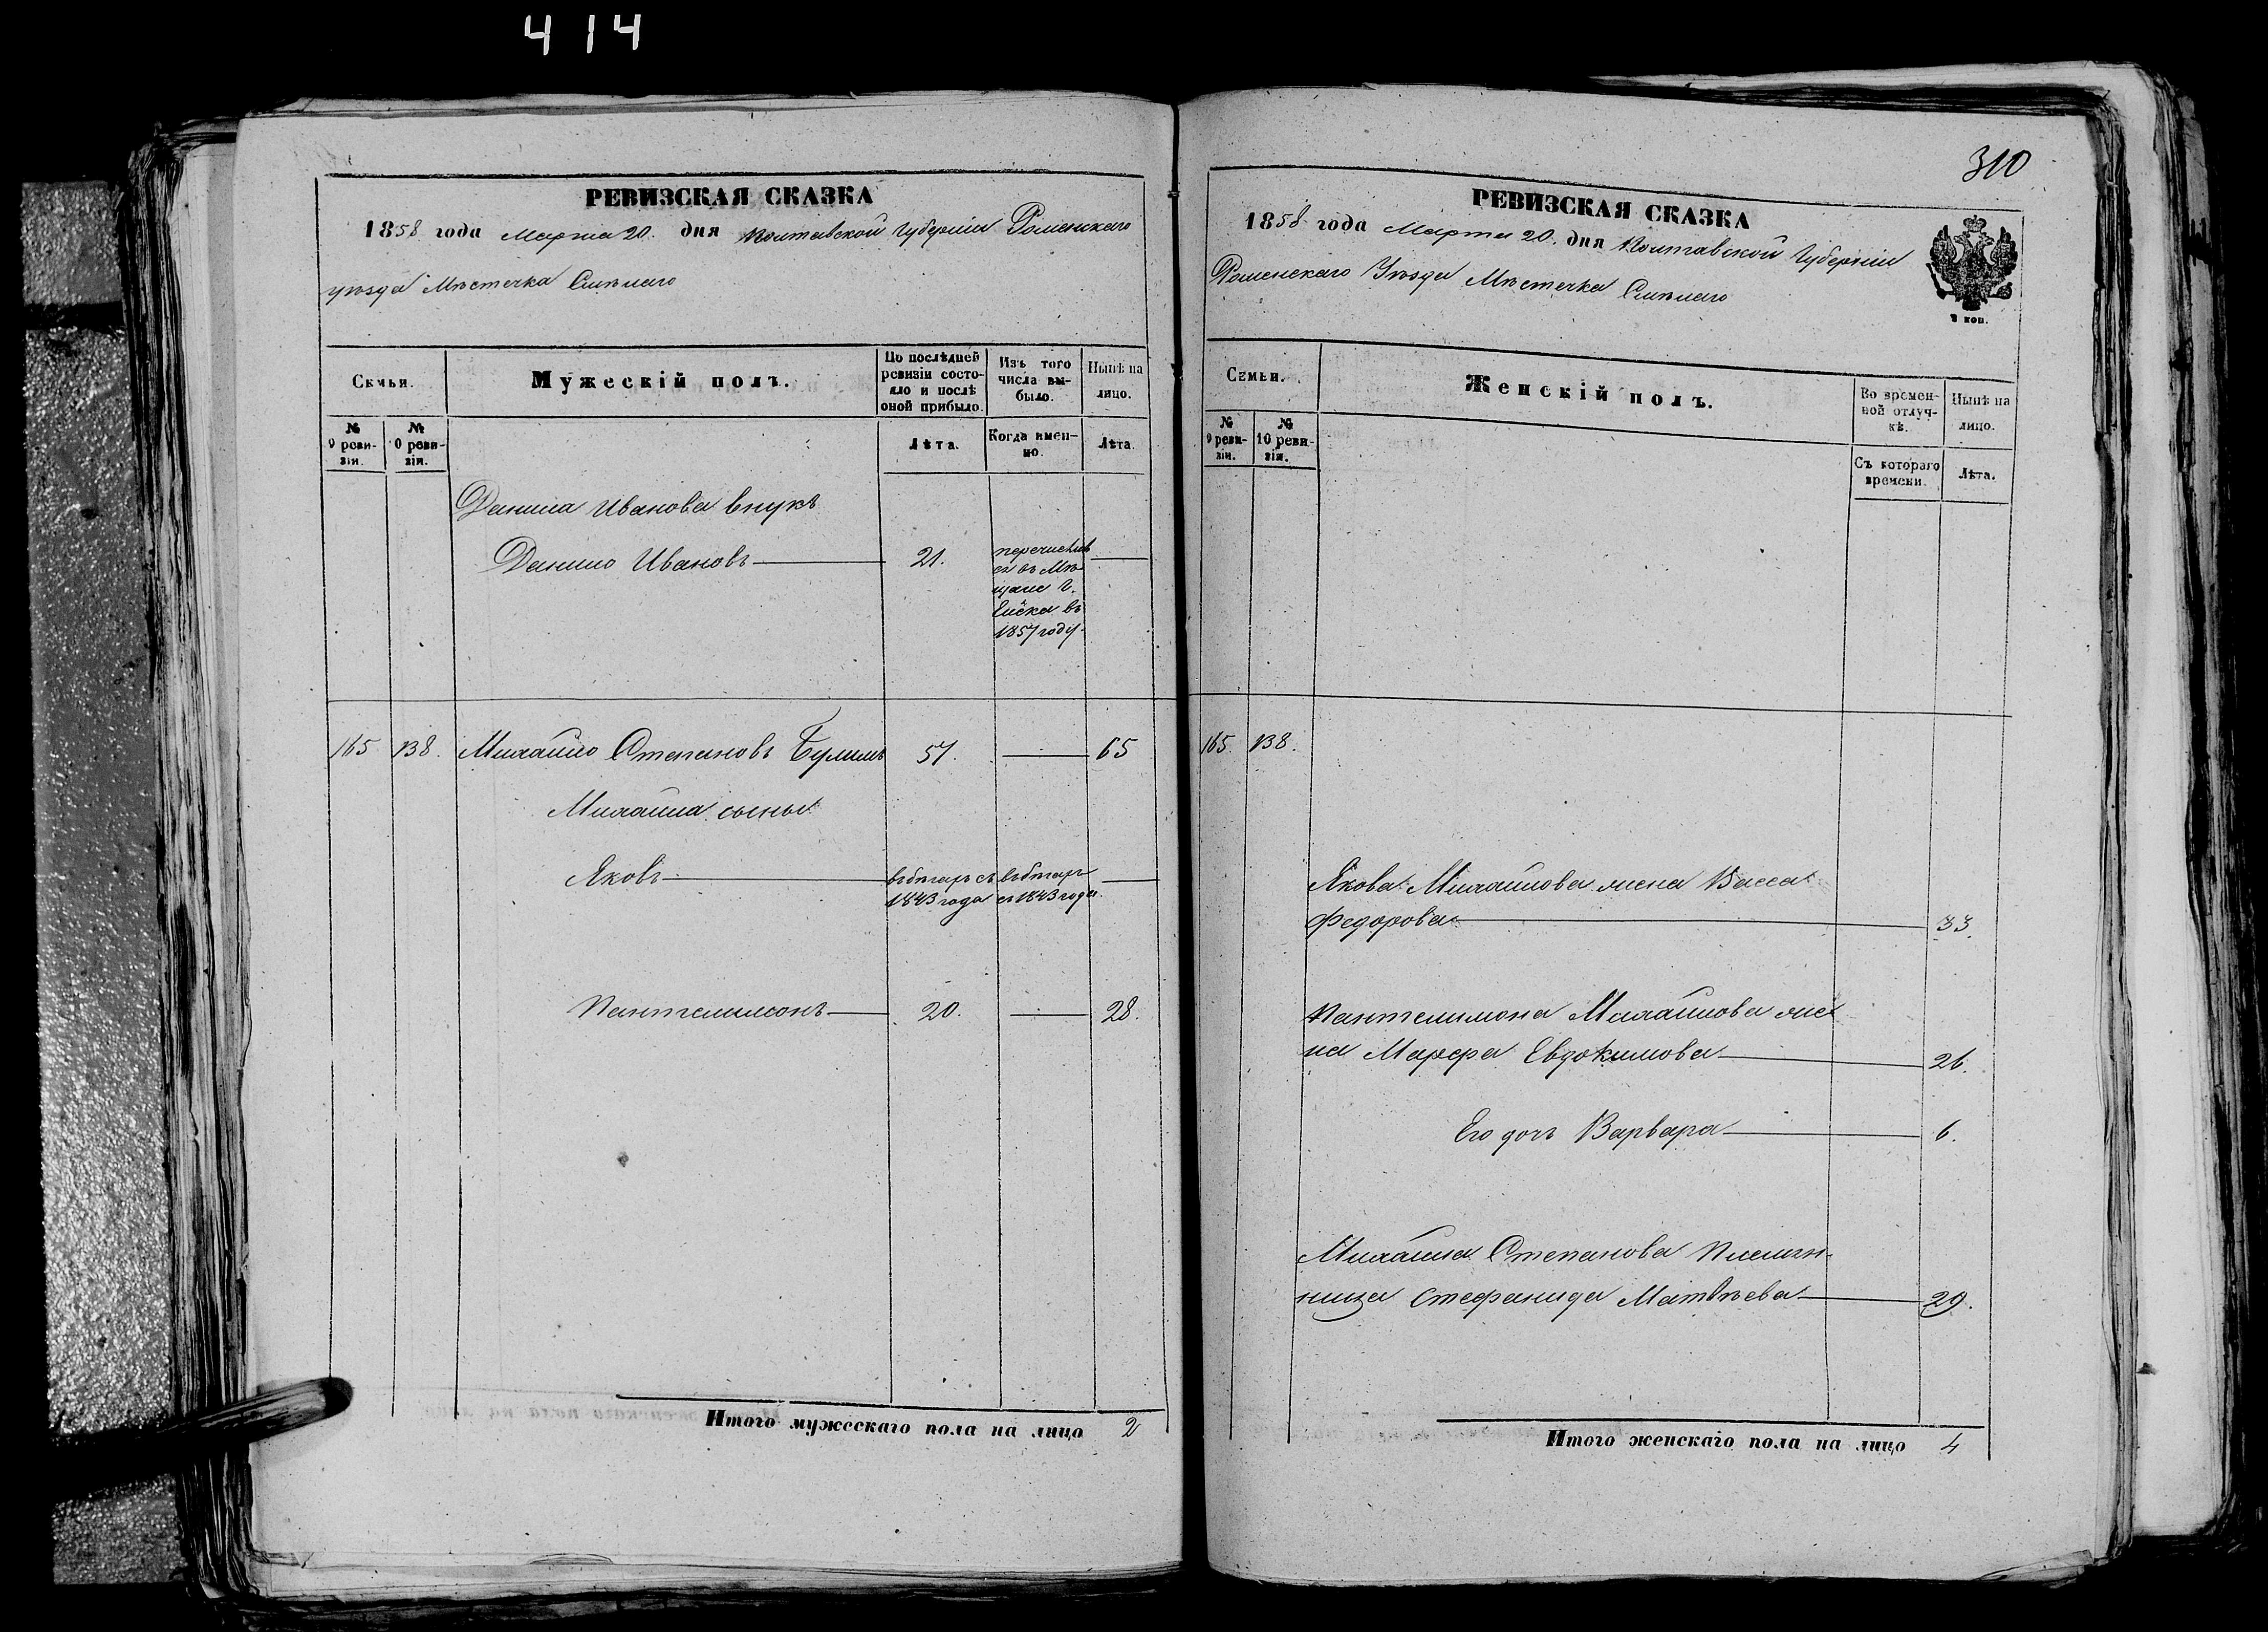 414
РЕВИЗСКАЯ СКАЗКА
1858 года Марта 20. дня Полтавской Губерніи Роменскаго
уѣзда Мѣстечка Смѣлаго
Семьи.
Мужескій полъ.
По послѣдней
ревизіи состо-
яло и послѣ
оной прибыло.
Изъ того
числа вы-
было.
Нынѣ на
лицо.
№
9 реви-
зіи.
№
10 реви-
зіи.
Лѣта.
Когда имен-
но.
Лѣта.
Данила Иванова внукъ
Данило Ивановъ 21.
перечислив
ся въ Мѣ
щане г.
Ейска въ
1857 году.
165 138. Михайло Степановъ 57. 65
Михайла сыны
Яковъ
1843 года съ 1843 года.
Пантелимонъ 20. 28.
Итого мужескаго пола на лицо 2
310
РЕВИЗСКАЯ СКАЗКА
1858 года Марта 20. дня Полтавской Губерніи
Роменскаго Уѣзда Мѣстечка Смѣлаго
2 коп.
Семьи.
Женскій полъ.
Во времен-
ной отлуч-
кѣ.
Нынѣ на
лицо.
№
9 реви-
зіи.
№
10 реви-
зіи.
Съ котораго
времени.
Лѣта.
165. 138.
Якова Михайлова жена Васса
Федорова 33.
Пантелимона Михайлова же
на Марфа Евдокимова 26.
Его дочь Варвара 6.
Михайла Степанова племян-
ница Стефанида Матвѣева 29.
Итого женскаго пола на лицо 4